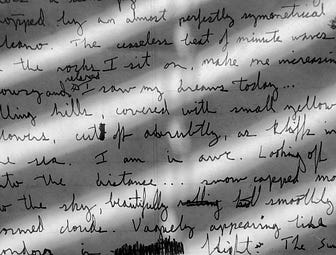 topped by an almost perfectly symmetrical
volcano. The ceaseless beat of minute waves
the rocks I sit on, make me increasin
drowsy and relaxed I saw my dreams today...
lling hills, covered with small yellow
lowers, cut off abruptly, as cliffs i
he sea. I am in awe. Looking off
nto the distance... snow capped mo
to the sky, beautifully smoothly
ormed clouds. Vaguely appearing like
in flight. The sun